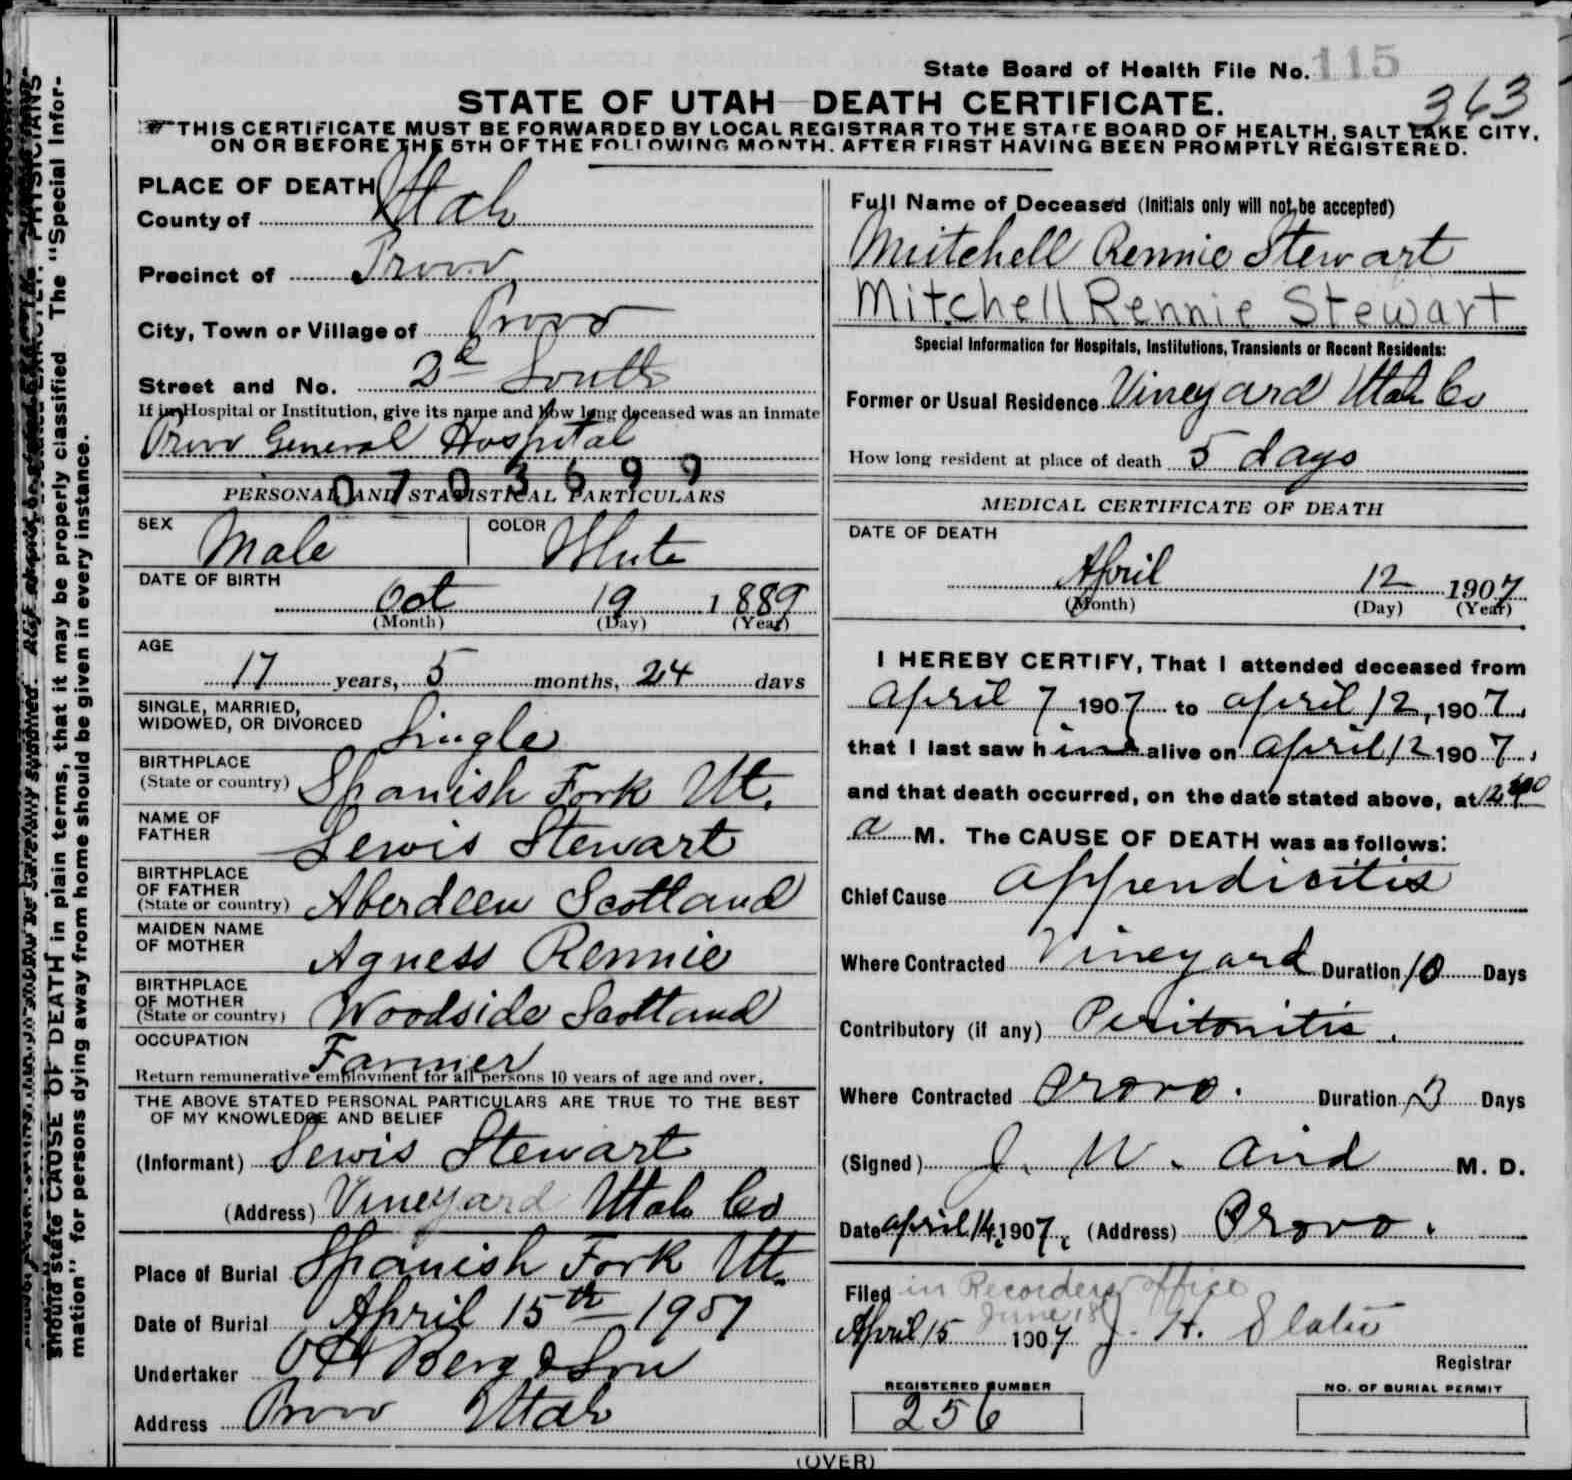 State Board of Health File No. 115
363
STATE OF UTAH—DEATH CERTIFICATE.
THIS CERTIFICATE MUST BE FORWARDED BY LOCAL REGISTRAR TO THE STATE BOARD OF HEALTH, SALT LAKE CITY,
ON OR BEFORE THE 5TH OF THE FOLLOWING MONTH. AFTER FIRST HAVING BEEN PROMPTLY REGISTERED.
PLACE OF DEATH
County of Utah
Precinct of Provo
City, Town or Village of Provo
Street and No. 2d South
If in Hospital or Institution, give its name and how long deceased was an inmate
Provo General Hospital
0703699
PERSONAL AND STATISTICAL PARTICULARS
SEX Male COLOR White
DATE OF BIRTH
Oct 19 1889
(Month) (Day) (Year)
AGE
17 years, 5 months, 24 days
SINGLE, MARRIED,
WIDOWED, OR DIVORCED Single
BIRTHPLACE
(State or country) Spanish Fork Ut.
NAME OF
FATHER Lewis Stewart
BIRTHPLACE
OF FATHER
(State or country) Aberdeen Scotland
MAIDEN NAME
OF MOTHER Agness Rennie
BIRTHPLACE
OF MOTHER
(State or country) Woodside Scotland
OCCUPATION
Farmer
Return remunerative employment for all persons 10 years of age and over.
THE ABOVE STATED PERSONAL PARTICULARS ARE TRUE TO THE BEST
OF MY KNOWLEDGE AND BELIEF
(Informant) Lewis Stewart
(Address) Vineyard Utah Co
Place of Burial Spanish Fork Ut.
Date of Burial April 15th 1907
Undertaker O H Berg & Son
Address Provo Utah
Full Name of Deceased (Initials only will not be accepted)
Mitchell Rennie Stewart
Mitchell Rennie Stewart
Special Information for Hospitals, Institutions, Transients or Recent Residents:
Former or Usual Residence Vineyard Utah Co
How long resident at place of death 5 days
MEDICAL CERTIFICATE OF DEATH
DATE OF DEATH
April 12 1907
(Month) (Day) (Year)
I HEREBY CERTIFY, That I attended deceased from
April 7 1907 to April 12, 1907,
that I last saw him alive on April 12 1907,
and that death occurred, on the date stated above, at 12
a M. The CAUSE OF DEATH was as follows:
Chief Cause Appendicitis
Where Contracted Vineyard Duration 10 Days
Contributory (if any) Peritonitis.
Where Contracted Provo. Duration 3 Days
(Signed) J. W. Aird M. D.
Date April 14, 1907, (Address) Provo.
Filed in Recorders office
June 18
April 15 1907 J. H. Slater
Registrar
REGISTERED NUMBER
256
NO. OF BURIAL PERMIT
(OVER)
should state CAUSE OF DEATH in plain terms, that it may be properly classified The "Special Infor-
mation" for persons dying away from home should be given in every instance.